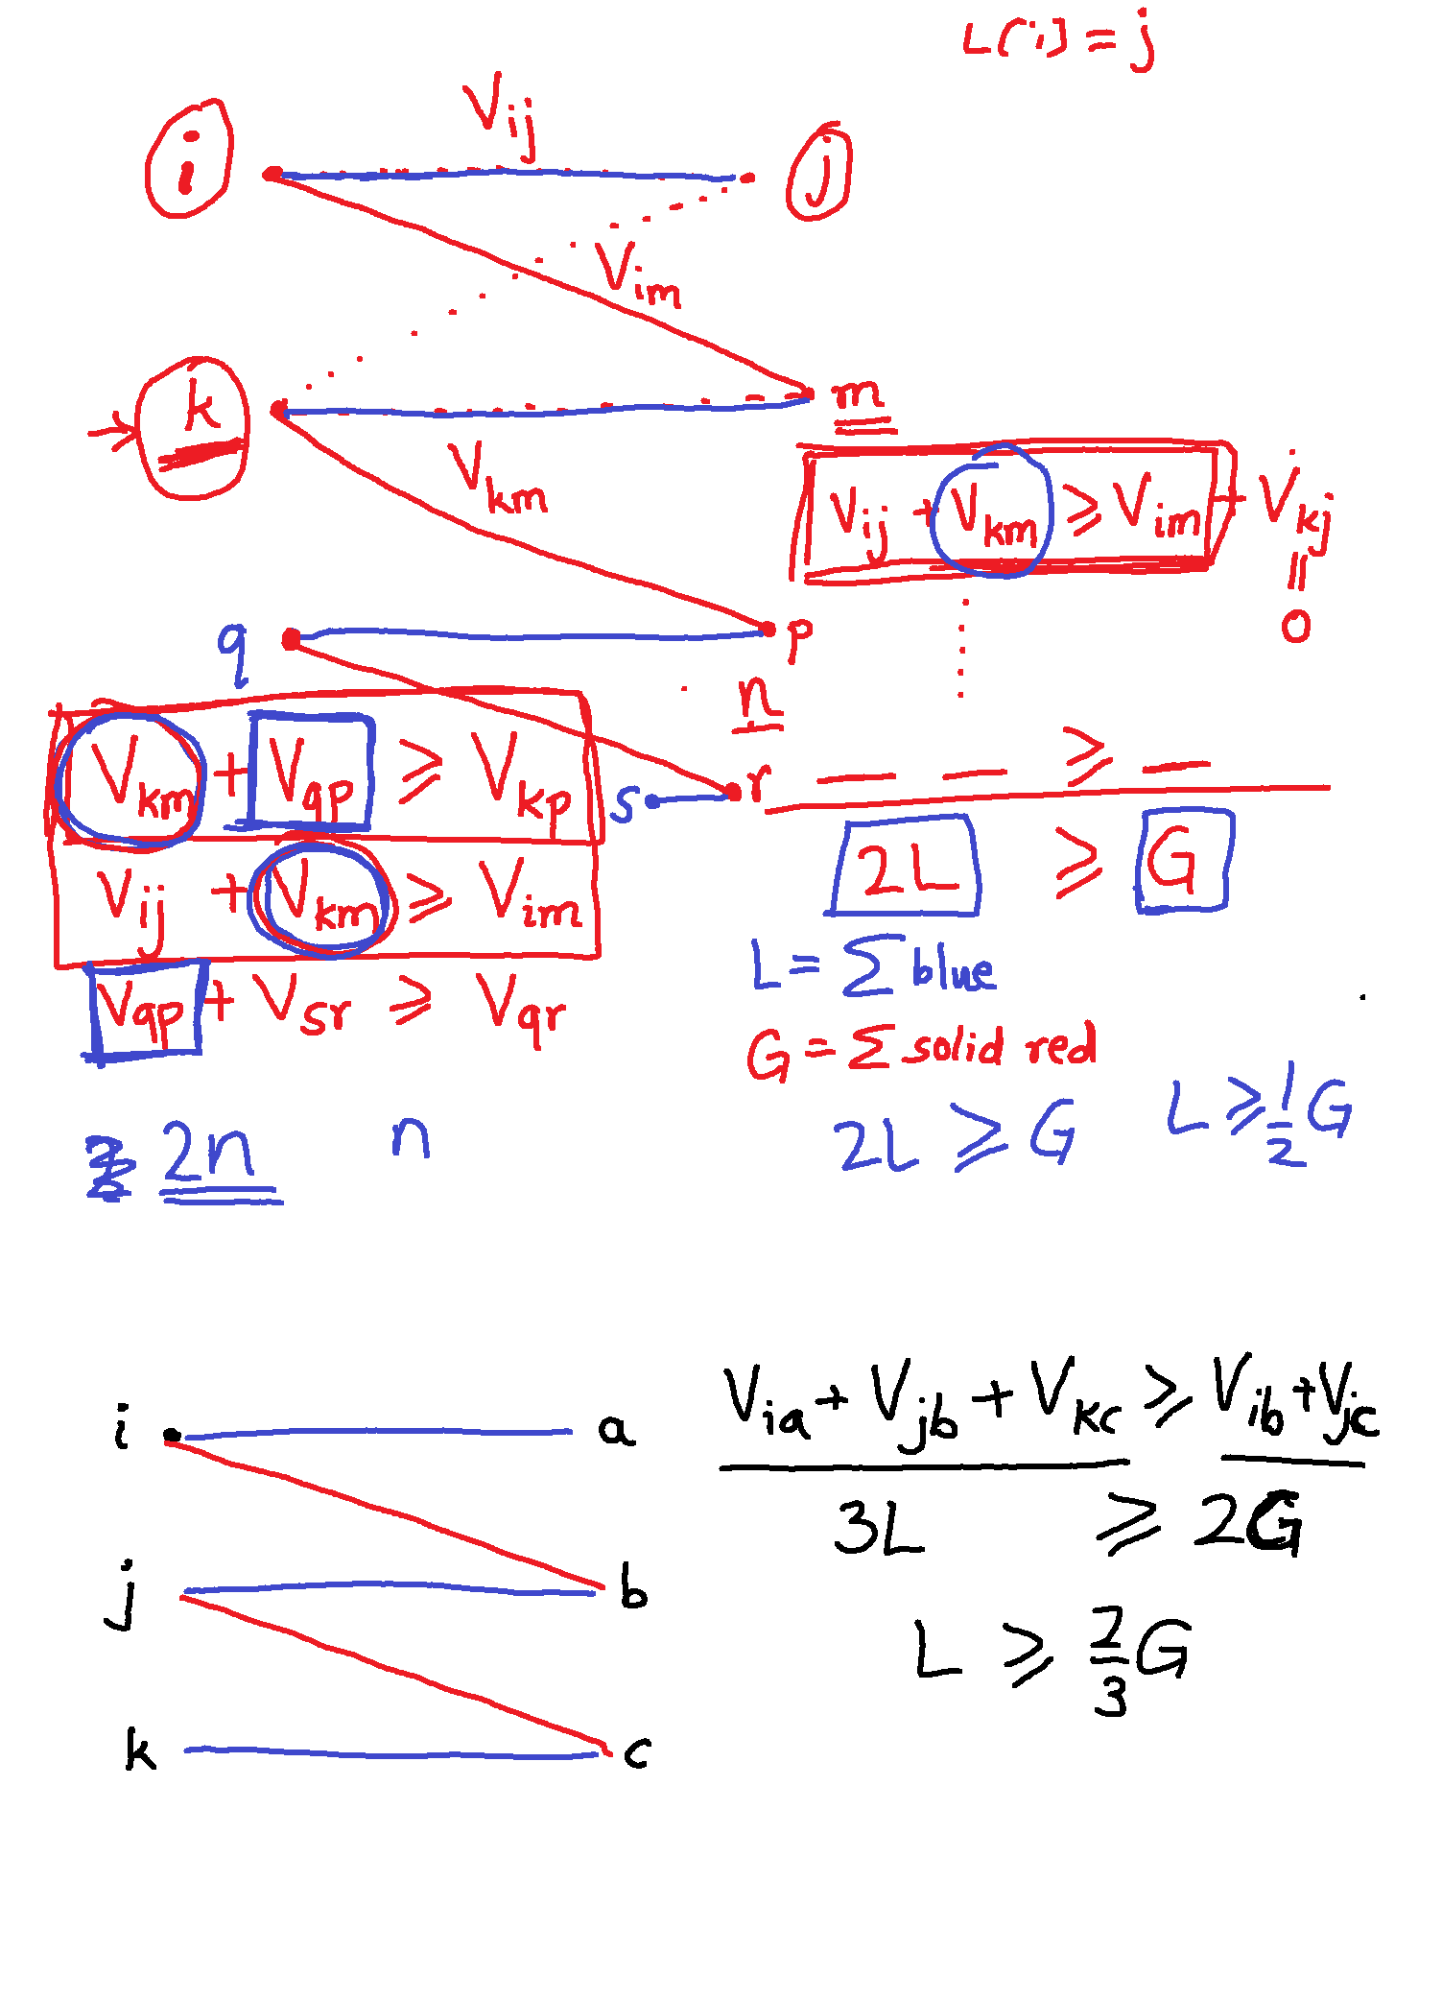 L[i] = j
V_ij
i
j
V_im
k
m
V_km
V_ij + V_km ≥ V_im + V_kj
= 0
q
p
n
V_km + V_qp ≥ V_kp
s
r
_ _ ≥ _
V_ij + V_km ≥ V_im
2L ≥ G
V_qp + V_sr ≥ V_qr
L = Σ blue
G = Σ solid red
2n
n
2L ≥ G
L ≥ 1/2 G
i
a
V_ia + V_jb + V_kc ≥ V_ib + V_jc
3L ≥ 2G
j
b
L ≥ 2/3 G
k
c